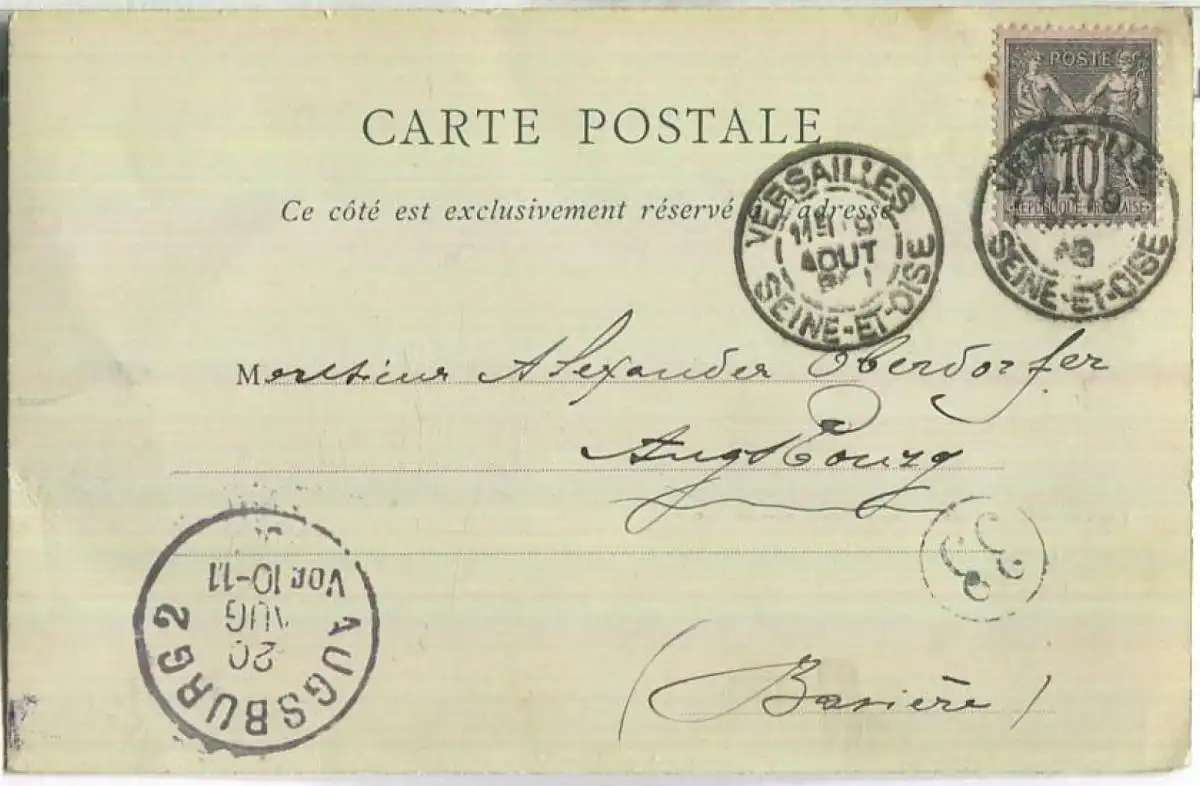 POSTE
10
RÉPUBLIQUE FRANÇAISE
CARTE POSTALE
Ce côté est exclusivement réservé adresse
VERSAILLES
AOUT
SEINE-ET-OISE
VERSAILLES
SEINE-ET-OISE
Monsieur Alexander Oberdorfer
Augsbourg
(Bavière)
AUGSBURG 2
20
AUG
Vor 10-11